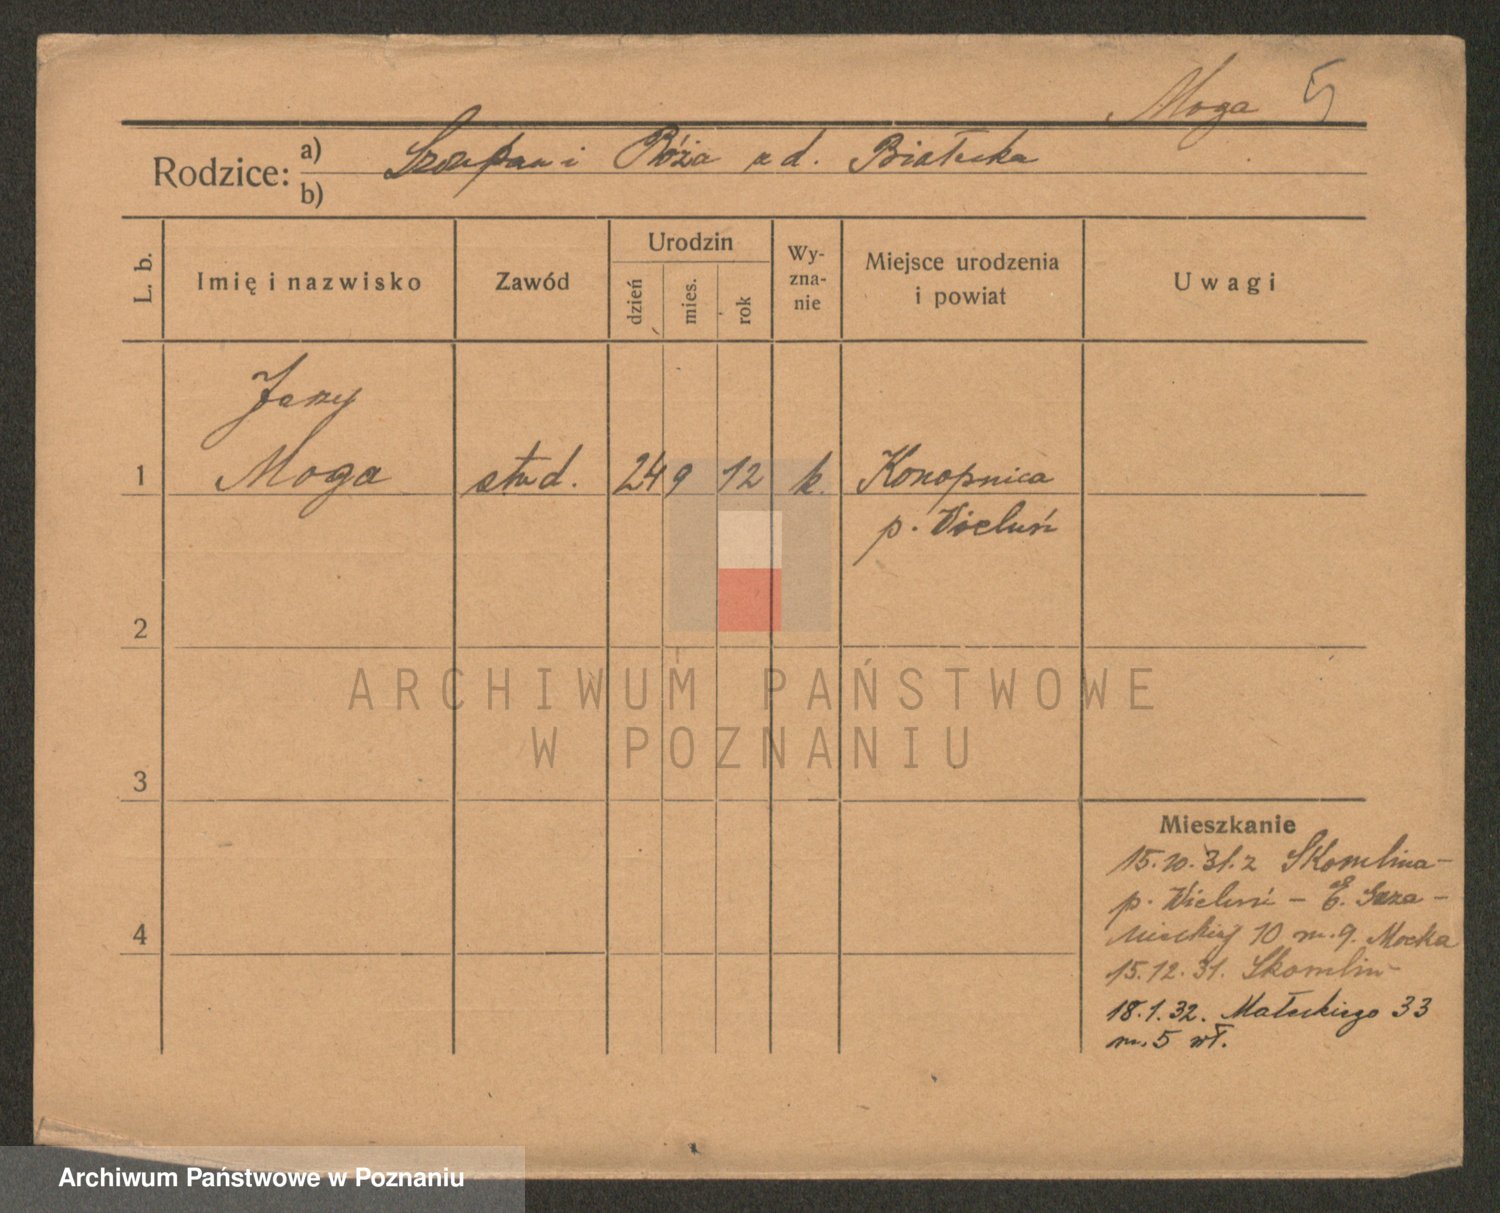 Moga 5
Rodzice: a) Szczepan i Róża z d. Białecka
b)
L. b. Imię i nazwisko Zawód Urodzin dzień mies. rok Wyznanie Miejsce urodzenia i powiat Uwagi
Jerzy
1 Moga stud. 24 9 12 k. Konopnica
p. Wieluń
2
3
4
Mieszkanie
15.10.31. z Skomlina-
p. Wieluń - E.
10 m. 9. Mocka
15.12.31. Skomlin-
18.1.32. Małeckiego 33
m. 5 wł.
ARCHIWUM PAŃSTWOWE
W POZNANIU
Archiwum Państwowe w Poznaniu